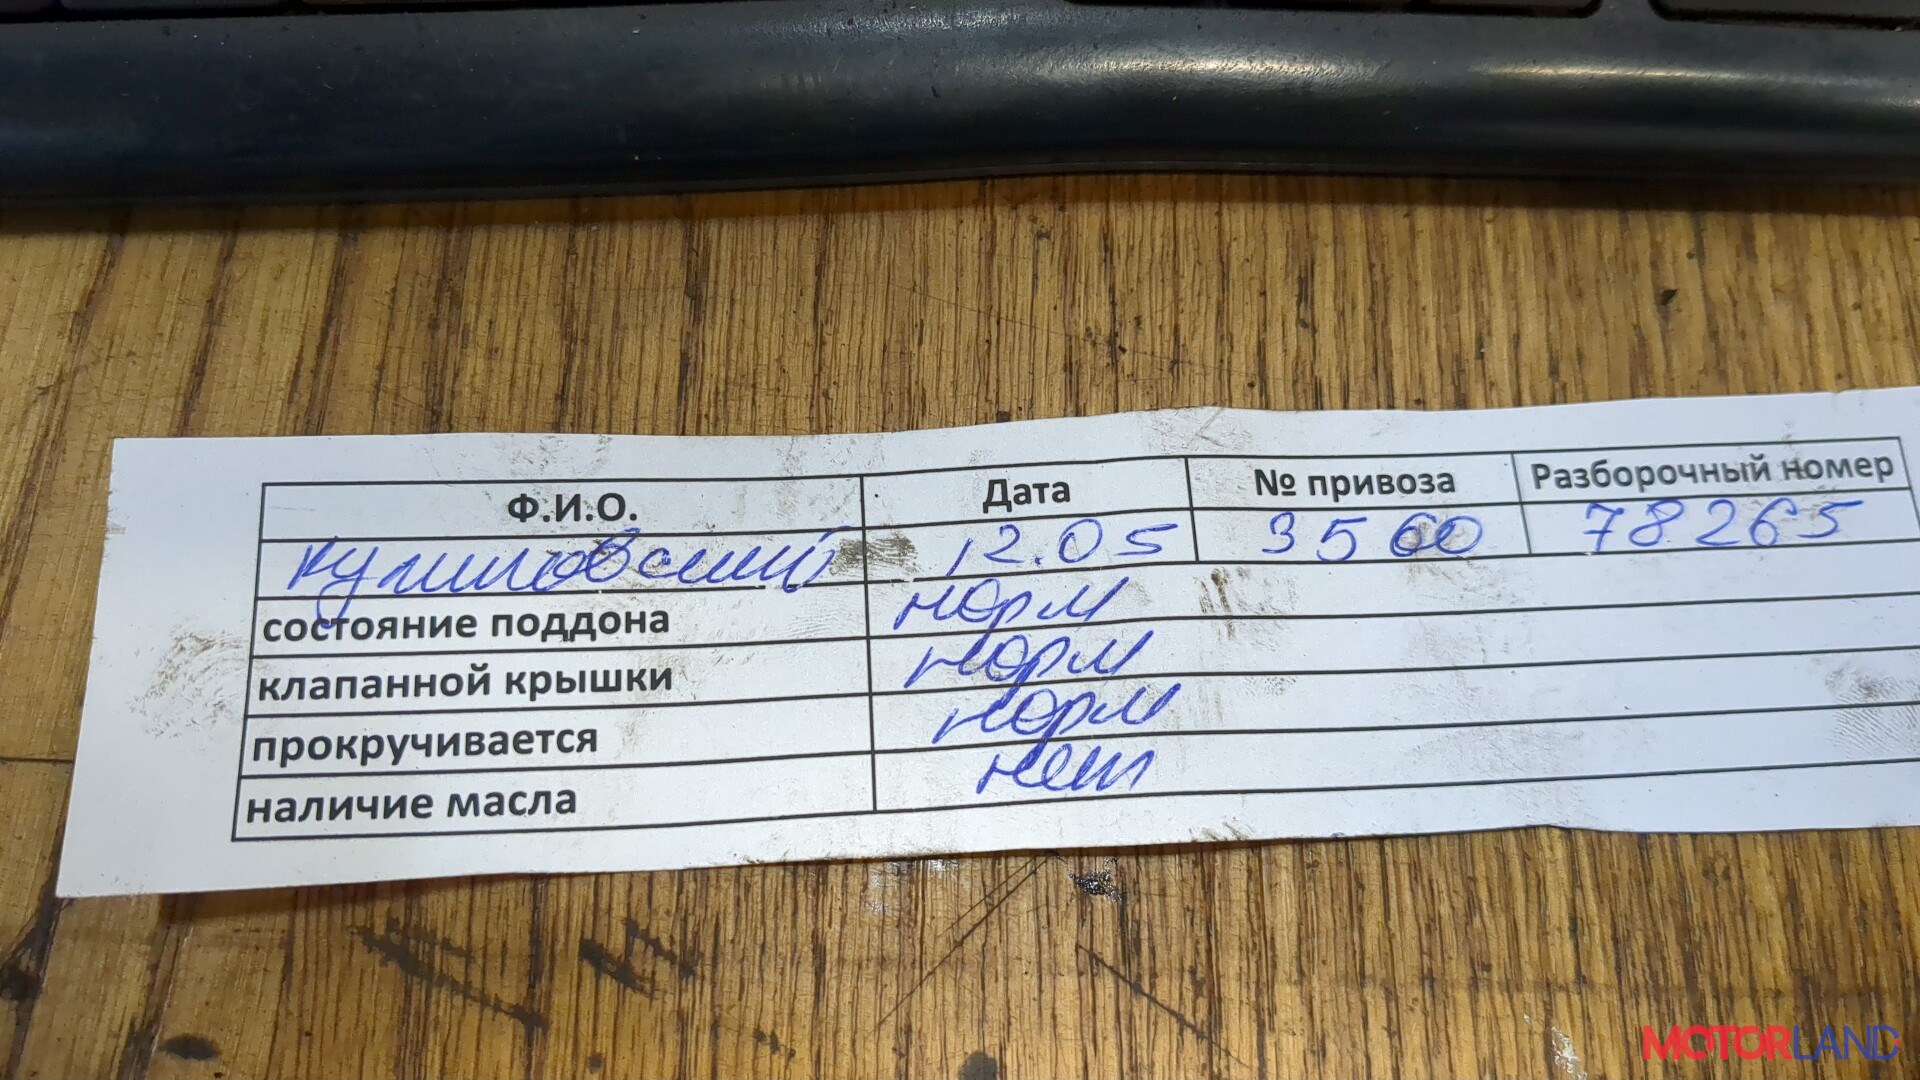 Ф.И.О. Дата № привоза Разборочный номер
12.05 3560 78265
состояние поддона норм
клапанной крышки норм
прокручивается норм
наличие масла нет
MOTORLAND